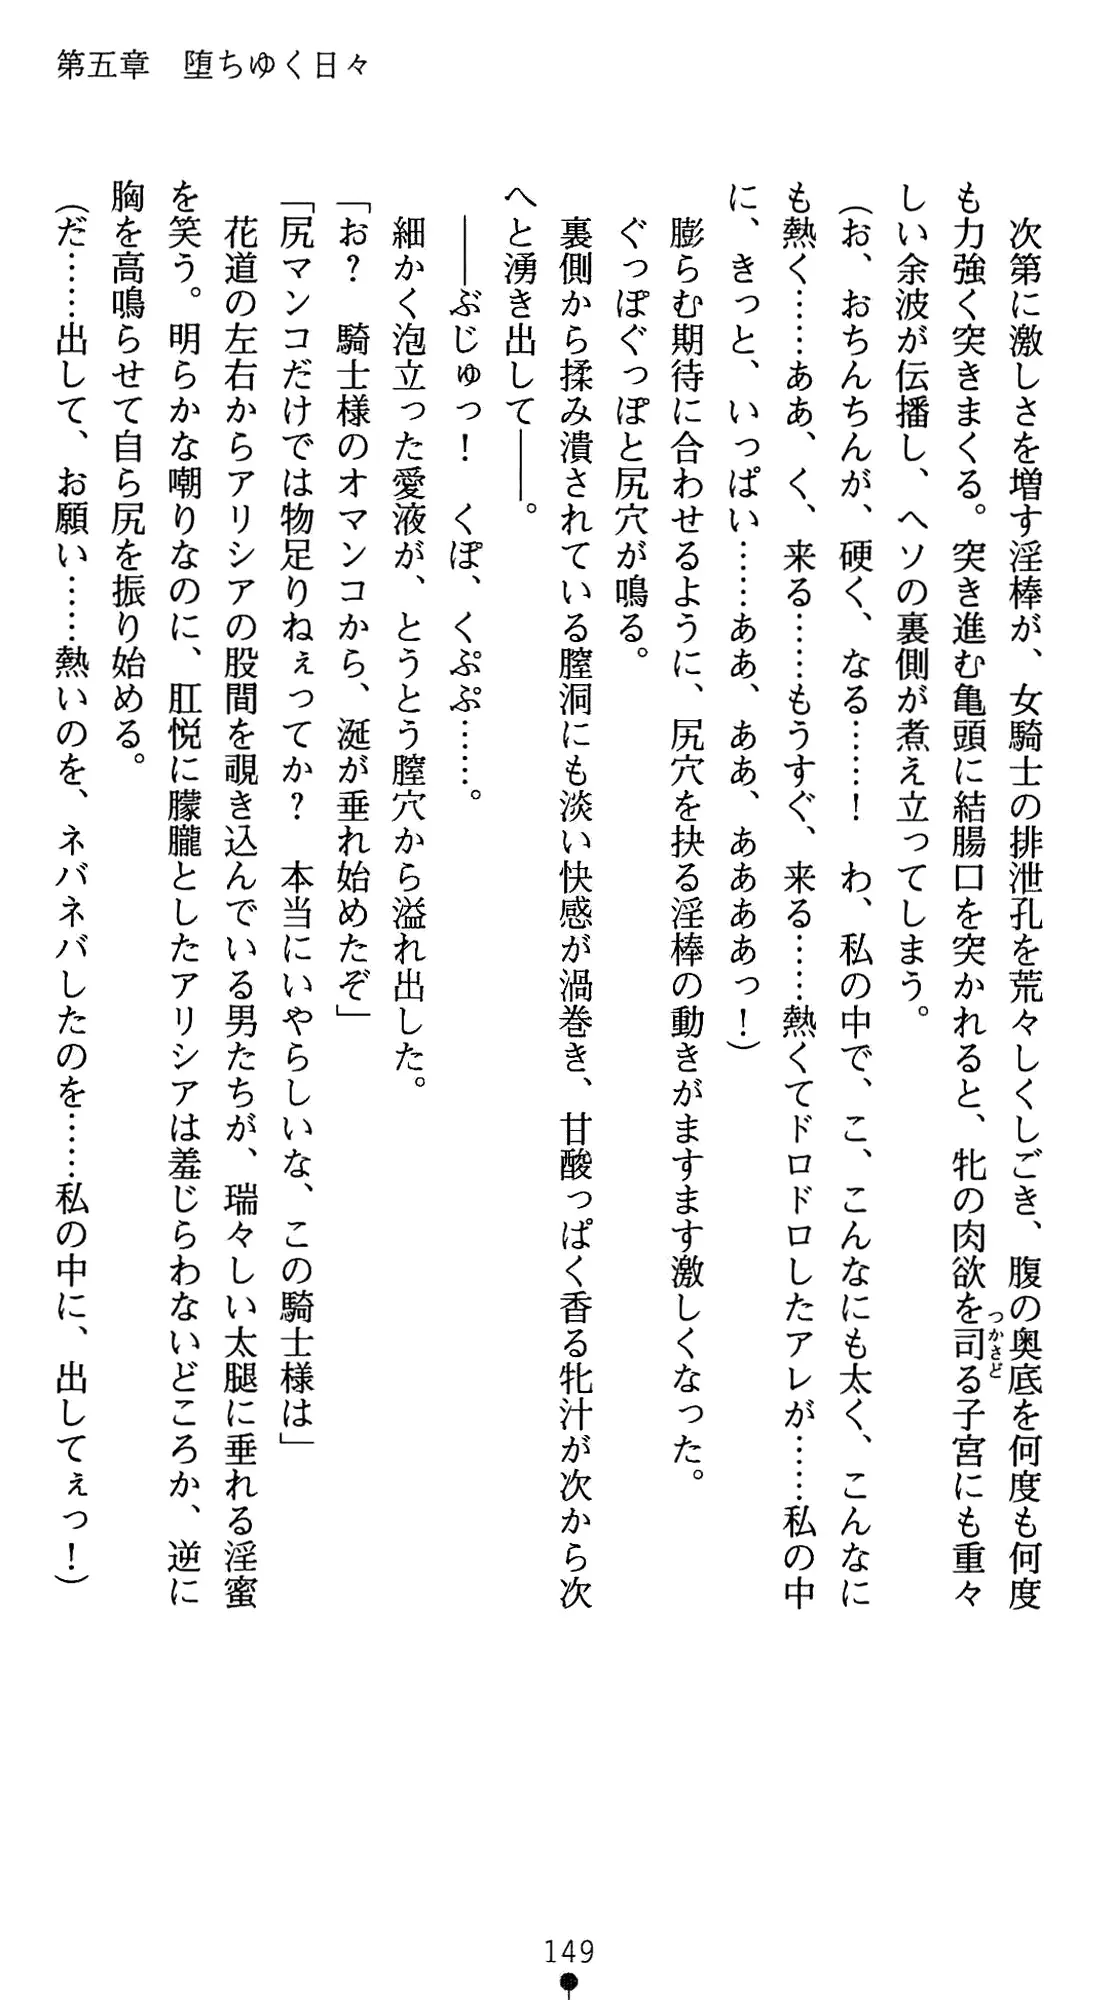 第五章　堕ちゆく日々
　次第に激しさを増す淫棒が、女騎士の排泄孔を荒々しくしごき、腹の奥底を何度も何度
も力強く突きまくる。突き進む亀頭に結腸口を突かれると、牝の肉欲を司る子宮にも重々
つかさど
しい余波が伝播し、ヘソの裏側が煮え立ってしまう。
（お、おちんちんが、硬く、なる……！　わ、私の中で、こ、こんなにも太く、こんなに
も熱く……ああ、く、来る……もうすぐ、来る……熱くてドロドロしたアレが……私の中
に、きっと、いっぱい……ああ、ああ、ああああっ！）
　膨らむ期待に合わせるように、尻穴を抉る淫棒の動きがますます激しくなった。
　ぐっぽぐっぽと尻穴が鳴る。
　裏側から揉み潰されている膣洞にも淡い快感が渦巻き、甘酸っぱく香る牝汁が次から次
へと湧き出して――。
　――ぶじゅっ！　くぽ、くぷぷ……。
　細かく泡立った愛液が、とうとう膣穴から溢れ出した。
「お？　騎士様のオマンコから、涎が垂れ始めたぞ」
「尻マンコだけでは物足りねぇってか？　本当にいやらしいな、この騎士様は」
　花道の左右からアリシアの股間を覗き込んでいる男たちが、瑞々しい太腿に垂れる淫蜜
を笑う。明らかな嘲りなのに、肛悦に朦朧としたアリシアは羞じらわないどころか、逆に
胸を高鳴らせて自ら尻を振り始める。
（だ……出して、お願い……熱いのを、ネバネバしたのを……私の中に、出してぇっ！）
149